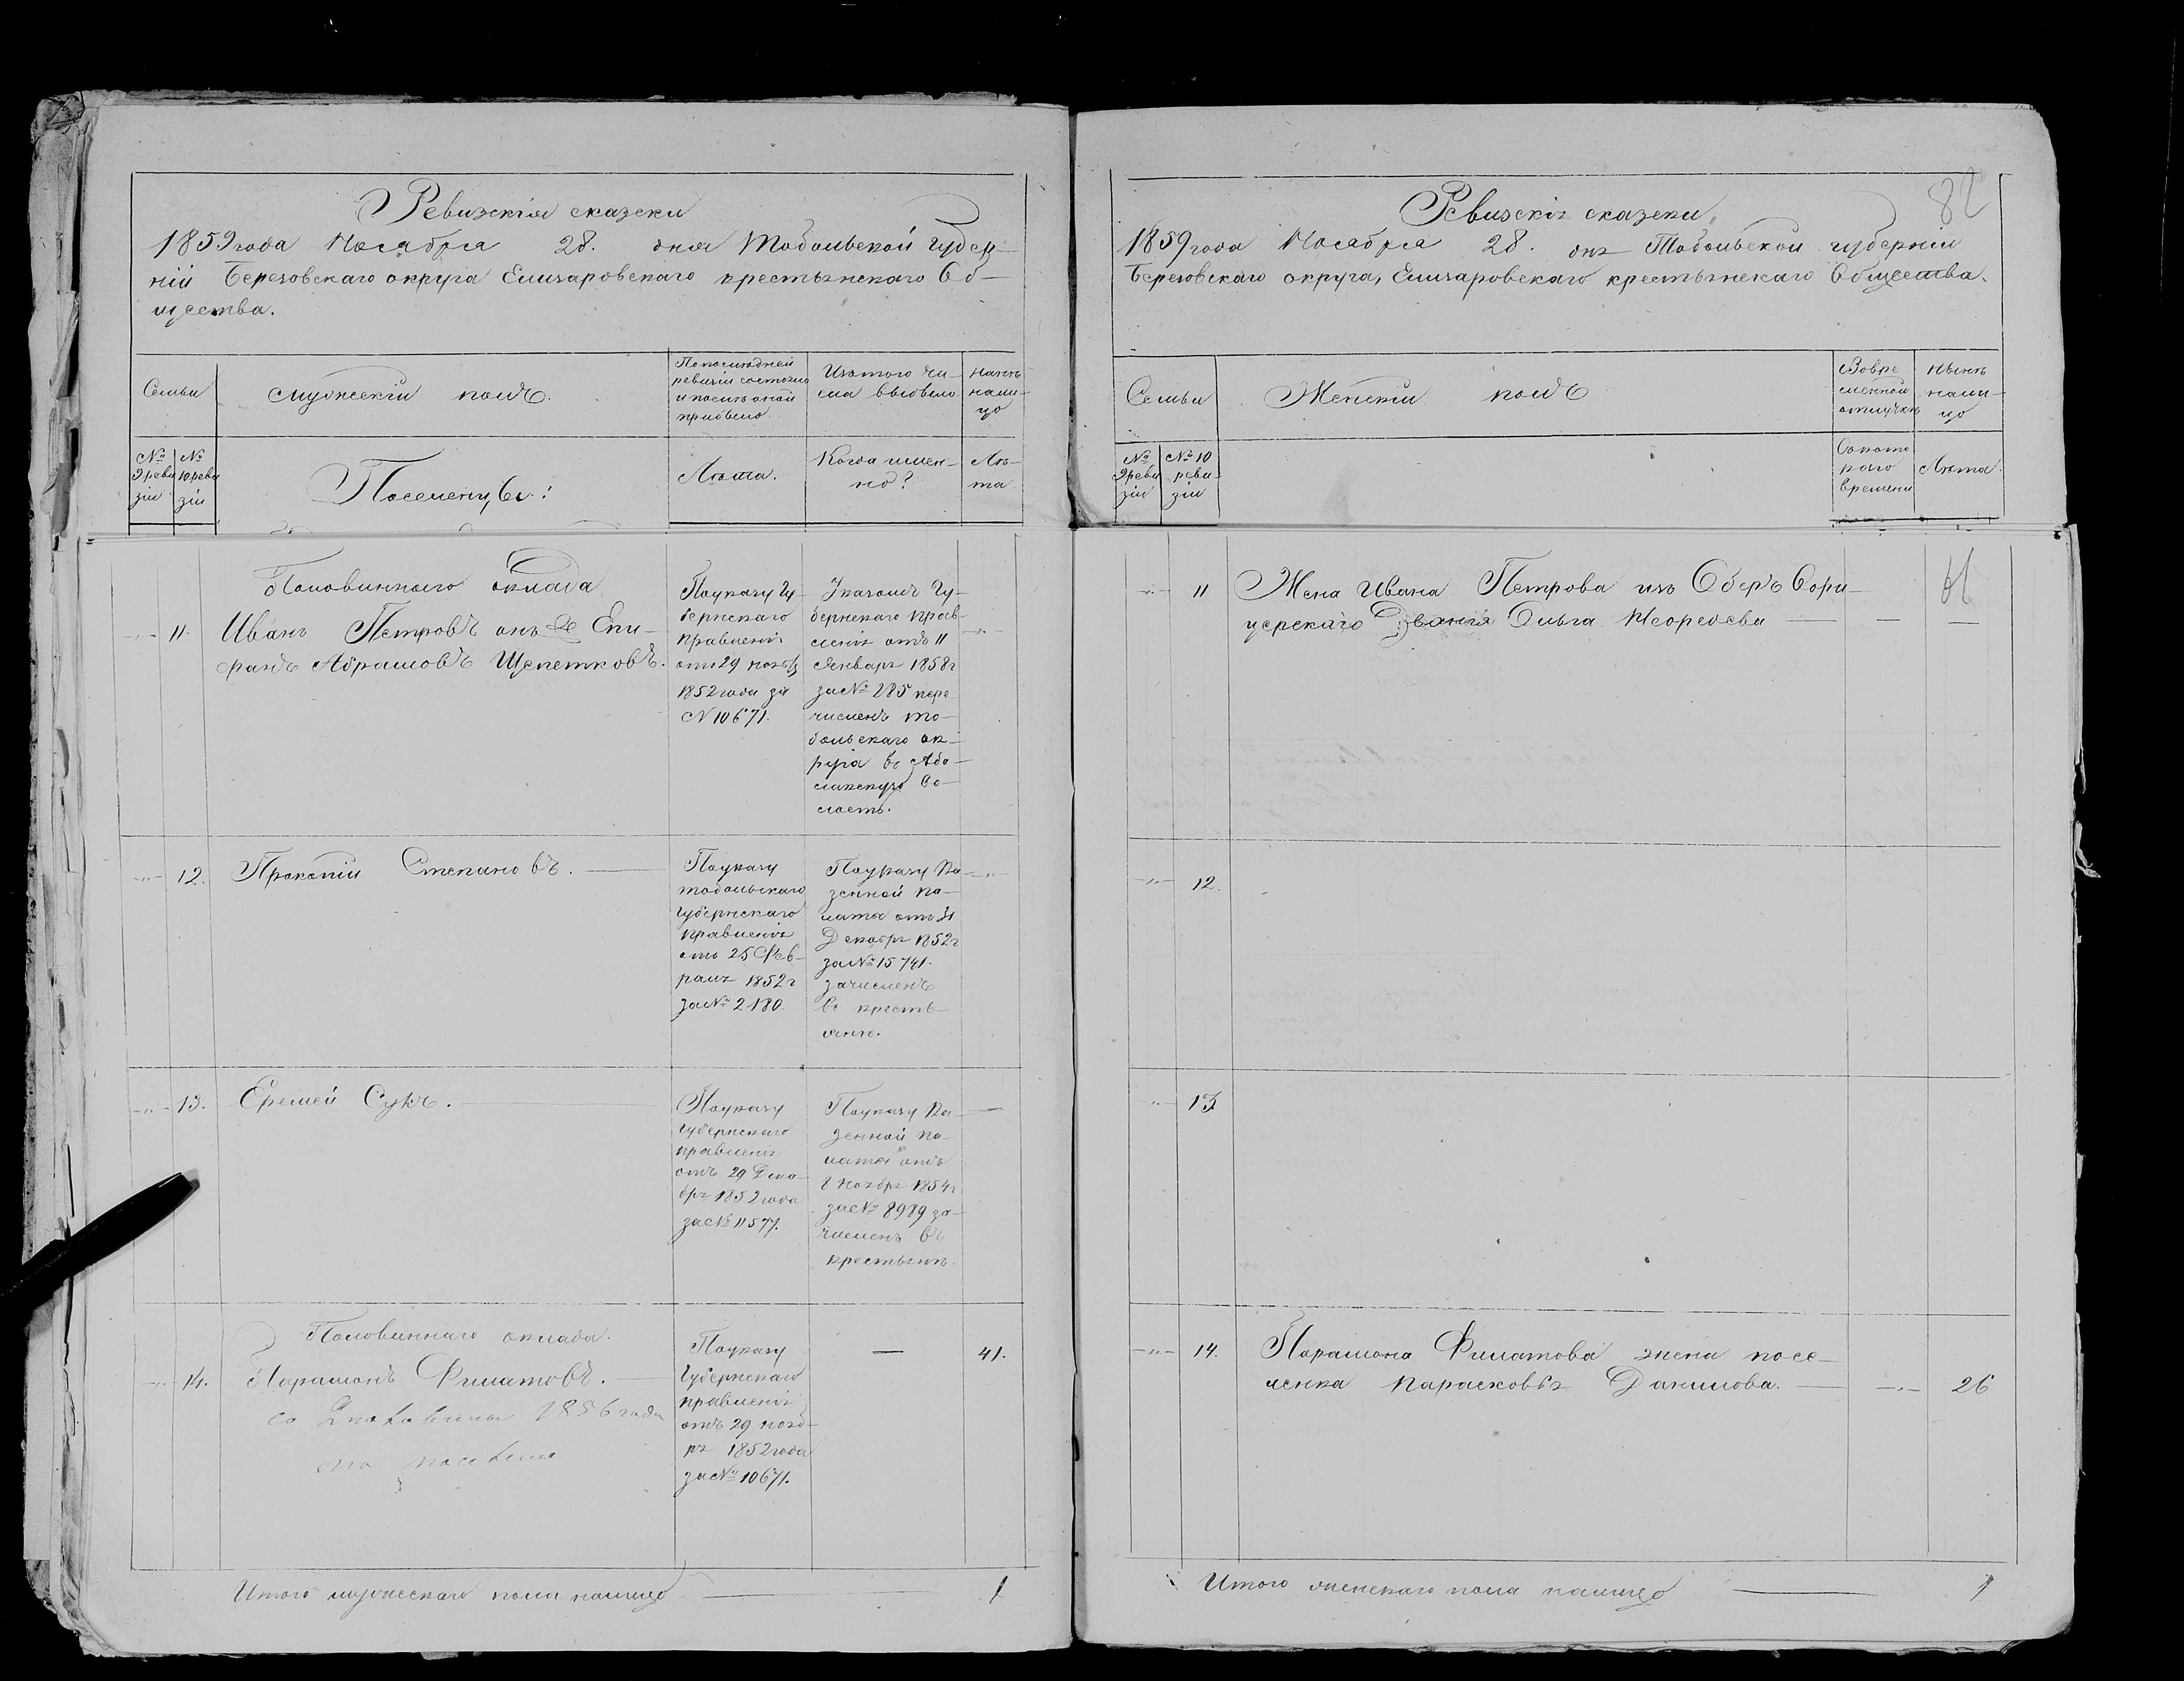 Ревизскія сказки
1859 года Ноября 28. дня Тобольской губер-
ніи Березовскаго округа Елизаровскаго крестьянскаго Об-
щества.
Семьи
мужескій полъ.
По последней
ревизіи состояло
и после оной
прибыло
Изътого чи-
сла выбыло
Нынѣ
нали-
цо
№
9 реви
зіи
№
10 реви
зіи
Поселенцы:
Лѣта.
Когда имен-
но?
Лѣ-
та
Половиннаго оклада
11. Иванъ Петровъ онъ же Епи-
фанъ Абрамовъ Щепетковъ.
Поуказу Гу-
бернскаго
правленія
отъ 29 нояб
1852 года за
№ 10671.
Указомъ Гу-
бернскаго прав-
ленія отъ 11
Января 1858 г
за № 285 пере
численъ То-
больскаго ок-
руга въ Аба-
лакскую Во-
лость.
12. Прокопій Степановъ.
Поуказу
тобольскаго
губернскаго
правленія
отъ 25 Фев-
раля 1852 г
за № 2180.
Поуказу Ка-
зенной па-
латы отъ 31
Декабря 1852 г
за № 15741.
зачисленъ
въ кресть-
яне.
13. Еремей Сукъ.
Поуказу
губернскаго
правленія
отъ 29 Дека-
бря 1852 года
за № 11577.
Поуказу Ка-
зенной па-
латы отъ
8 ноября 1854 г
за № 8989 за-
численъ въ
крестьяне.
Половиннаго оклада.
14. Парамонъ Филатовъ.
со 2 половины 1856 года
Поуказу
Губернскаго
правленія
отъ 29 нояб-
ря 1852 года
за № 10671.
—
41.
Итого мужескаго пола налицо 1
82
Ревизскія сказки
1859 года Ноября 28. дня Тобольской губерніи
Березовскаго округа, Елизаровскаго крестьянскаго Общества.
Семьи
Женскій полъ
Вовре
менной
отлучкѣ
Нынѣ
нали-
цо
№
9 реви
зіи
№ 10
реви-
зіи
Ското
раго
времени
Лѣта.
11 Жена Ивана Петрова изъ Оберъ Офи-
церскаго Званія Ольга
12.
13
14. Парамона Филатова жена посе-
ленка Парасковья Данилова. 26
Итого женскаго пола налицо 1